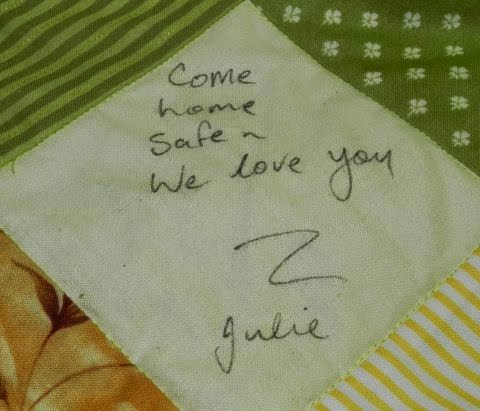 Come
home
safe ~
We love you
Z
Julie